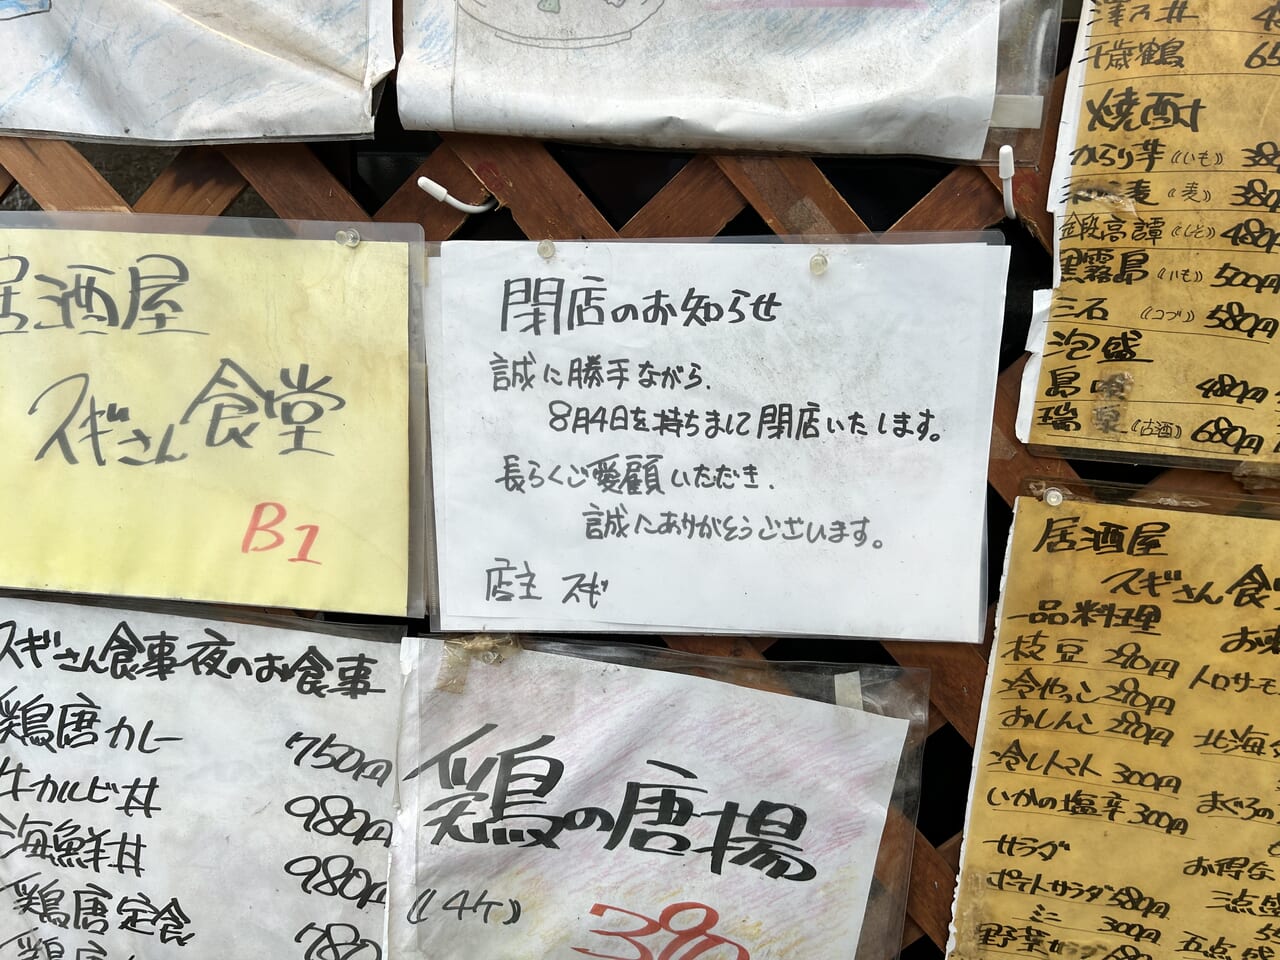 居酒屋
スギさん食堂
B1
閉店のお知らせ
誠に勝手ながら、
8月4日を持ちまして閉店いたします。
長らくご愛顧いただき、
誠にありがとうございます。
店主 スギ
千歳鶴 65
焼酎
からり芋《いも》380
麦《麦》380
金段高譚《しそ》480円
黒霧島《いも》500円
三石《コブ》580円
泡盛
島 480円
瑞 《古酒》680円
居酒屋
スギさん食
一品料理
枝豆 290円
冷やっこ 290円
おしんこ 290円
冷しトマト 300円
いかの塩辛 300円
サラダ
ポテトサラダ 580円
ミニ 300円
野菜サ
トロサーモ
北海
まぐろの
お得な
五点盛
スギさん食事夜のお食事
鶏唐カレー 750円
牛カルビ丼 980円
海鮮丼 980円
鶏唐定食 780
鶏の唐揚
《4ケ》
390